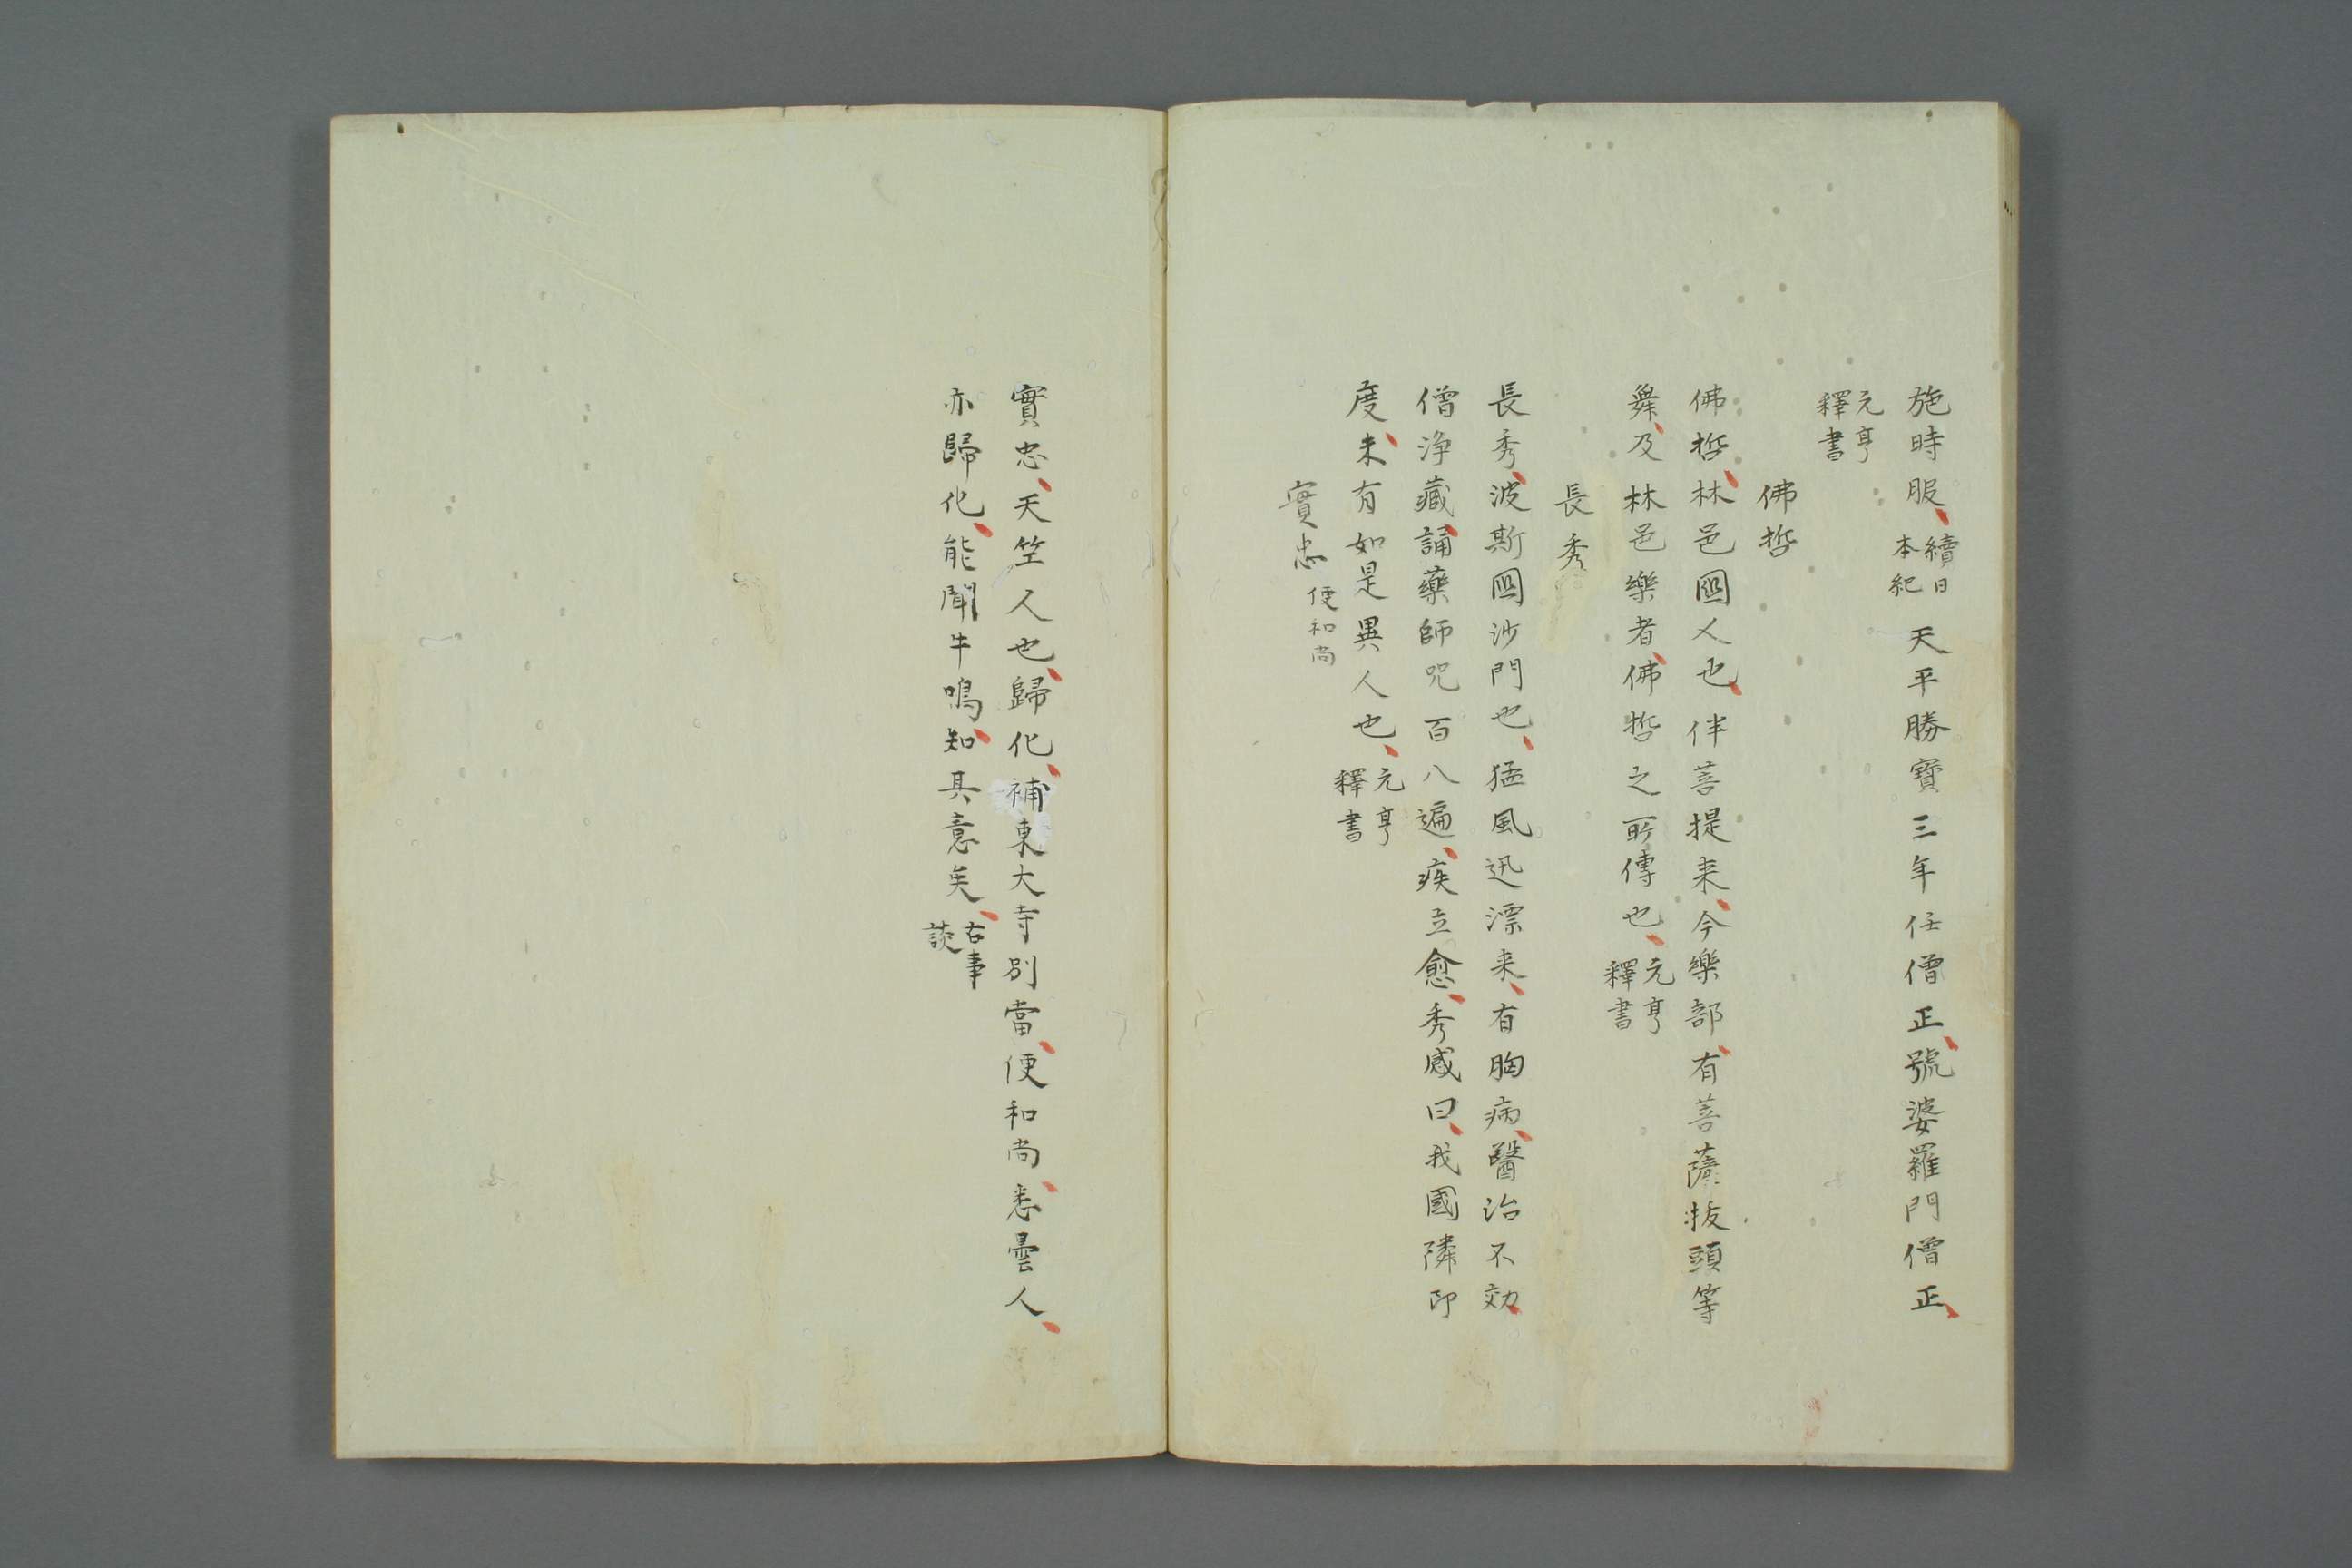 施時服、續日本紀天平勝寶三年任僧正、號婆羅門僧正、
元亨釋書
佛哲
佛哲、林邑國人也、伴菩提来、今樂部、有菩薩抜頭等
舞、及林邑樂者、佛哲之所傳也、元亨釋書
長秀
長秀、波斯國沙門也、猛風迅漂来、有胸病、醫治不効、
僧浄藏、誦藥師咒百八遍、疾立愈、秀感曰、我國隣印
度、未有如是異人也、元亨釋書
實忠 便和尚
實忠、天竺人也、歸化、補東大寺別當、便和尚、悉曇人、
亦歸化、能聞牛鳴、知其意矣、古事談